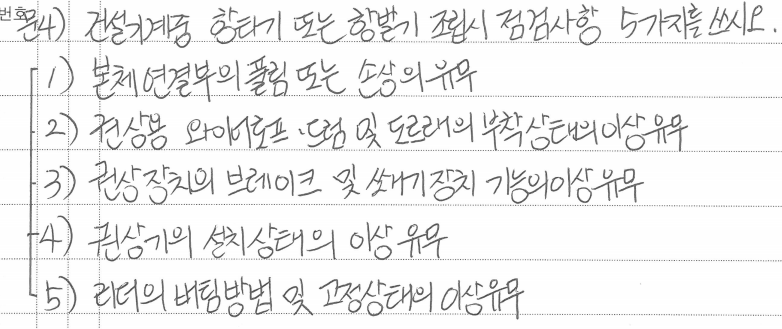 번호
문4) 건설기계중 항타기 또는 항발기 조립시 점검사항 5가지를 쓰시오.
1) 본체 연결부의 풀림 또는 손상의 유무
2) 권상용 와이어로프·드럼 및 도르래의 부착상태의 이상유무
3) 권상장치의 브레이크 및 쐐기장치 기능의 이상유무
4) 권상기의 설치상태의 이상유무
5) 리더의 버팀방법 및 고정상태의 이상유무